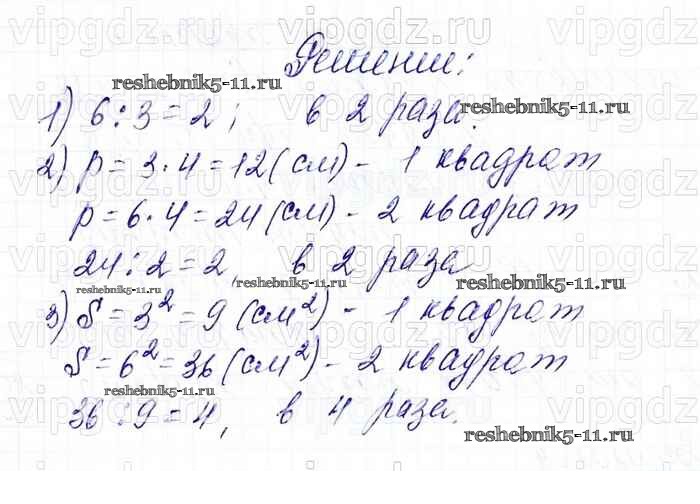 vipgdz.ru vipgdz.ru vipgdz.ru vipgdz
Решение:
reshebnik5-11.ru
1) 6:3=2; в 2 раза.
reshebnik5-11.ru
2) p=3·4=12(см) - 1 квадрат
p=6·4=24(см) - 2 квадрат
24:2=2, в 2 раза
reshebnik5-11.ru
reshebnik5-11.ru
3) S=3²=9(см²) - 1 квадрат
S=6²=36(см²) - 2 квадрат
reshebnik5-11.ru
36:9=4, в 4 раза.
reshebnik5-11.ru